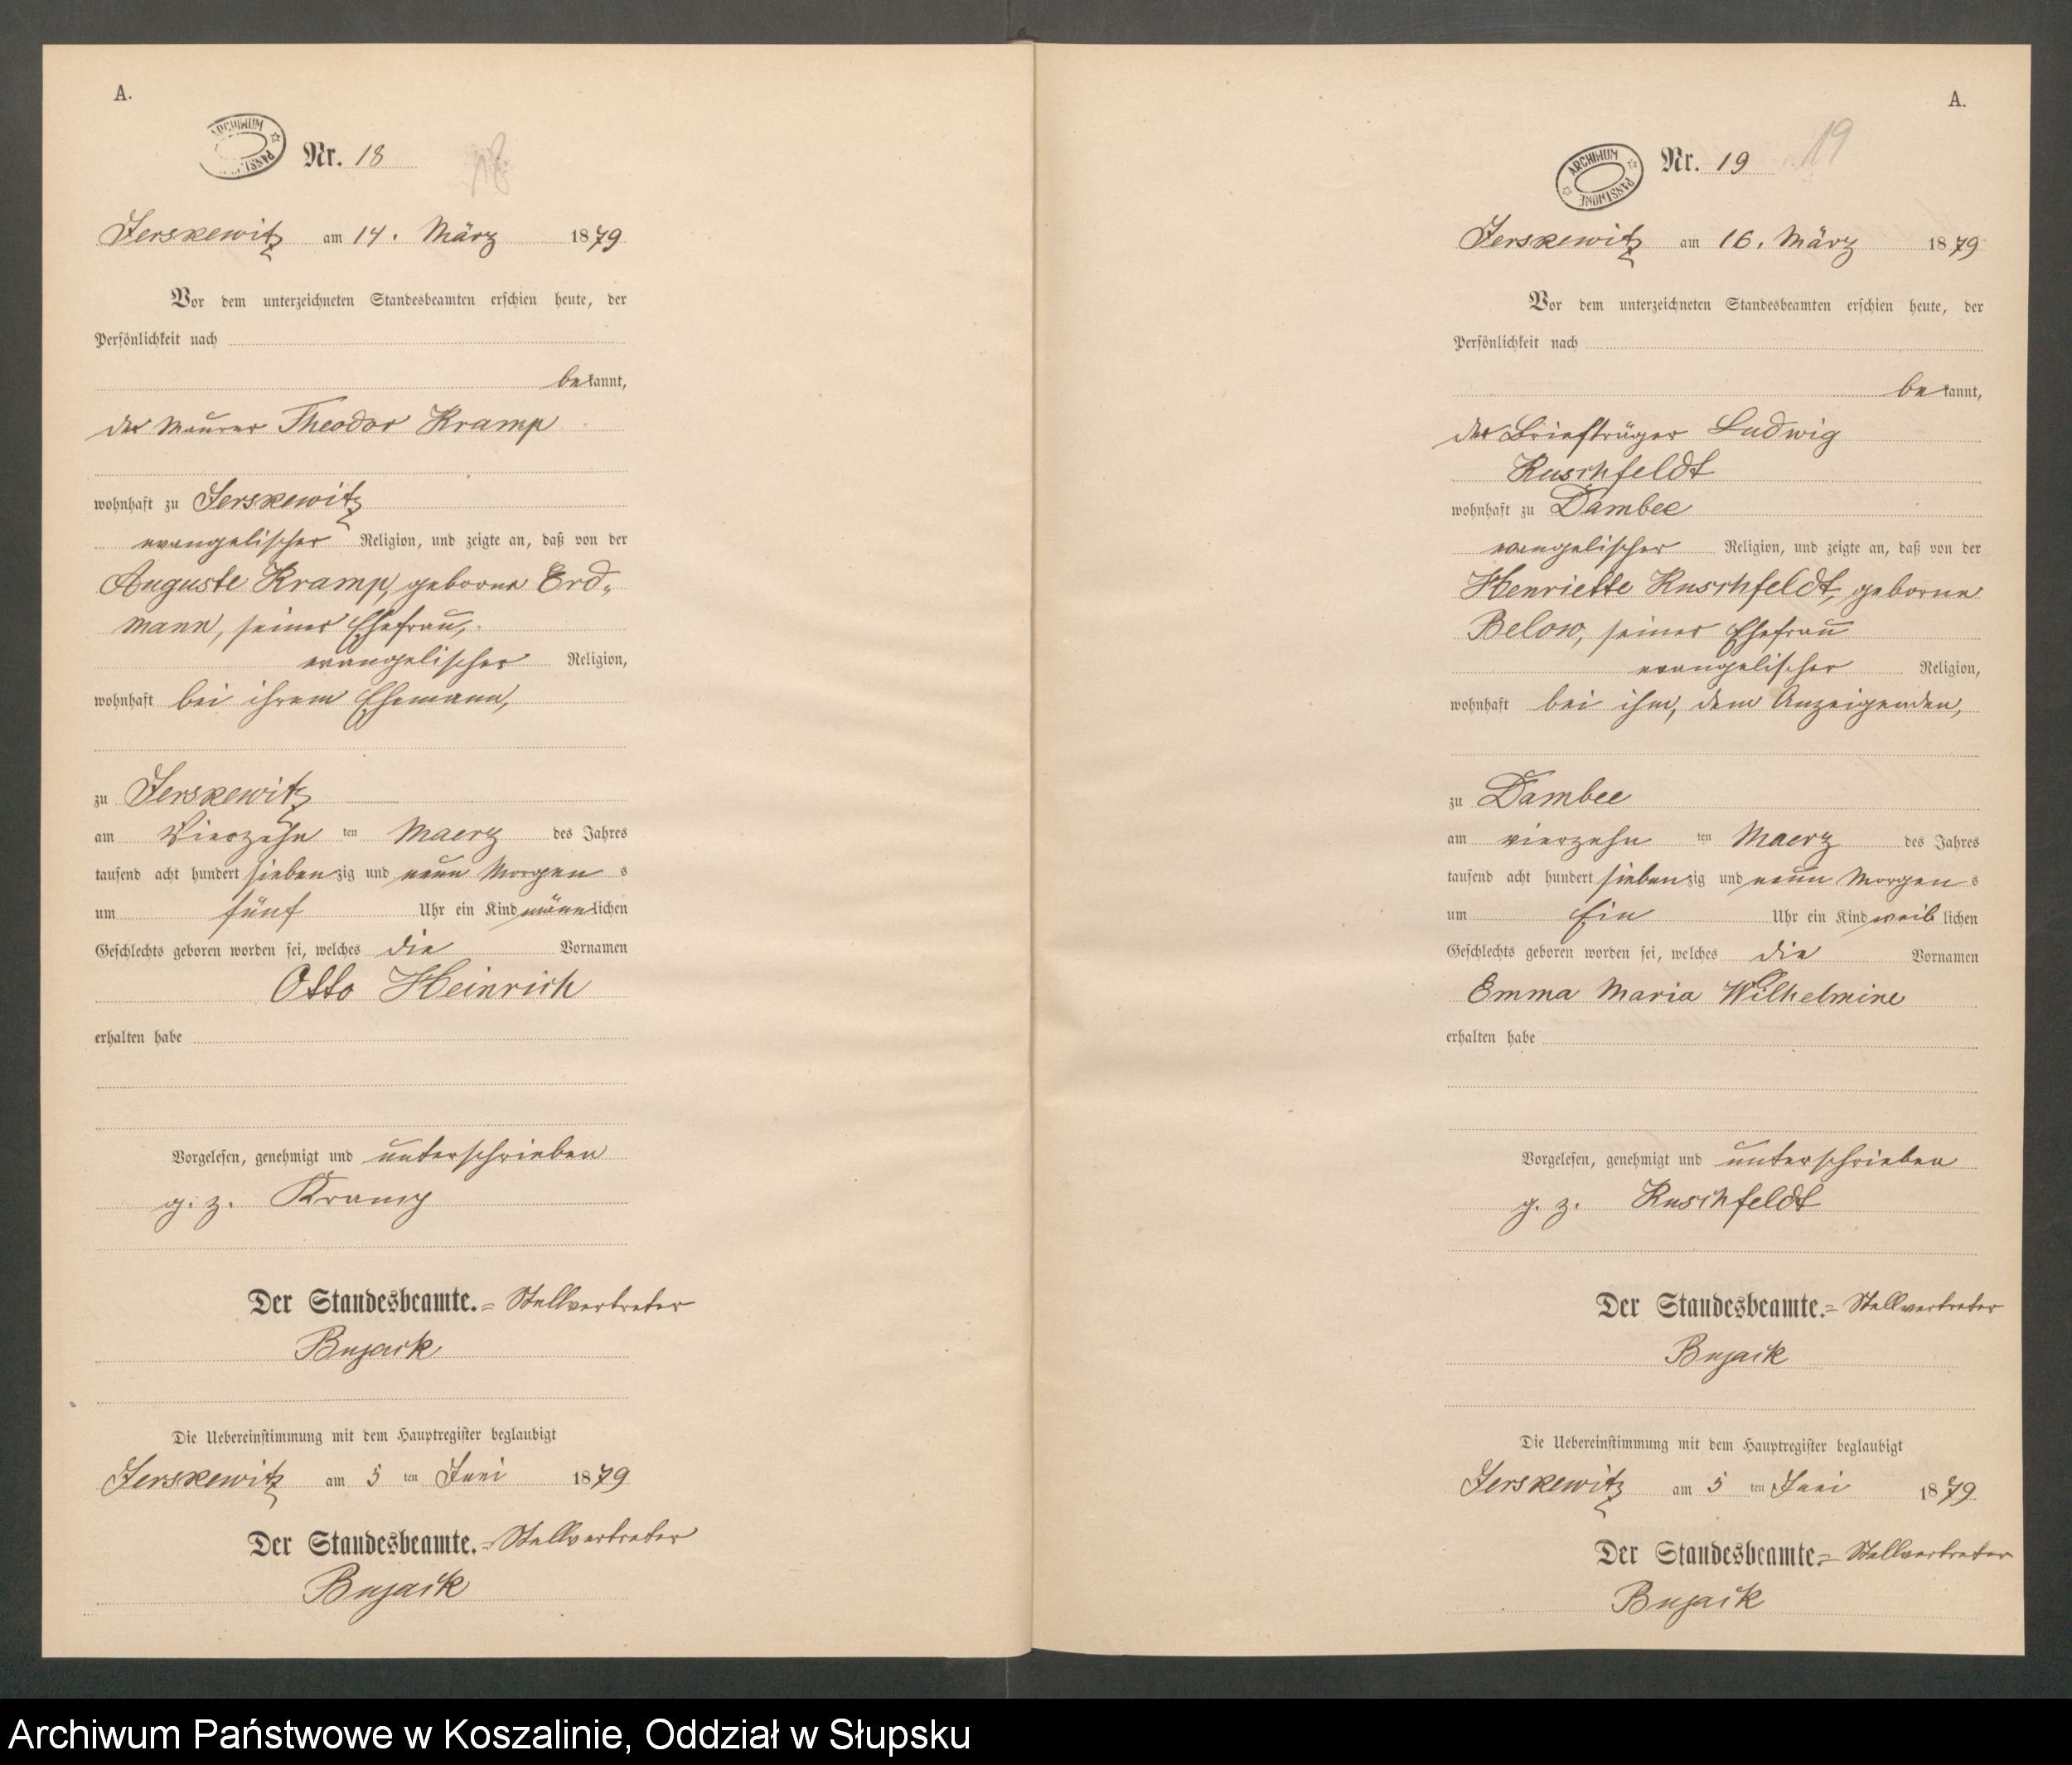 A.
ARCHIWUM PAŃSTWOWE
Nr. 18
18
Jerskewitz am 14. März 1879
Vor dem unterzeichneten Standesbeamten erschien heute, der
Persönlichkeit nach
bekannt,
der Maurer Theodor Kramp
wohnhaft zu Jerskewitz
evangelischer Religion, und zeigte an, daß von der
Auguste Kramp, geborne Erd-
mann, seiner Ehefrau,
evangelischer Religion,
wohnhaft bei ihrem Ehemann,
zu Jerskewitz
am Vierzehn ten Maerz des Jahres
tausend acht hundert siebenzig und neun Morgens
um fünf Uhr ein Kind männlichen
Geschlechts geboren worden sei, welches die Vornamen
Otto Heinrich
erhalten habe
Vorgelesen, genehmigt und unterschrieben
g. z. Kramp
Der Standesbeamte.=Stellvertreter
Bujack
Die Uebereinstimmung mit dem Hauptregister beglaubigt
Jerskewitz am 5 ten Juni 1879
Der Standesbeamte.=Stellvertreter
Bujack
A.
ARCHIWUM PAŃSTWOWE
Nr. 19
19
Jerskewitz am 16. März 1879
Vor dem unterzeichneten Standesbeamten erschien heute, der
Persönlichkeit nach
bekannt,
der Briefträger Ludwig
Ruschfeldt
wohnhaft zu Dambee
evangelischer Religion, und zeigte an, daß von der
Henriette Ruschfeldt, geborne
Below, seiner Ehefrau
evangelischer Religion,
wohnhaft bei ihm, dem Anzeigenden,
zu Dambee
am vierzehn ten Maerz des Jahres
tausend acht hundert siebenzig und neun Morgens
um Ein Uhr ein Kind weiblichen
Geschlechts geboren worden sei, welches die Vornamen
Emma Maria Wilhelmine
erhalten habe
Vorgelesen, genehmigt und unterschrieben
g. z. Ruschfeldt
Der Standesbeamte.=Stellvertreter
Bujack
Die Uebereinstimmung mit dem Hauptregister beglaubigt
Jerskewitz am 5 ten Juni 1879
Der Standesbeamte=Stellvertreter
Bujack
Archiwum Państwowe w Koszalinie, Oddział w Słupsku